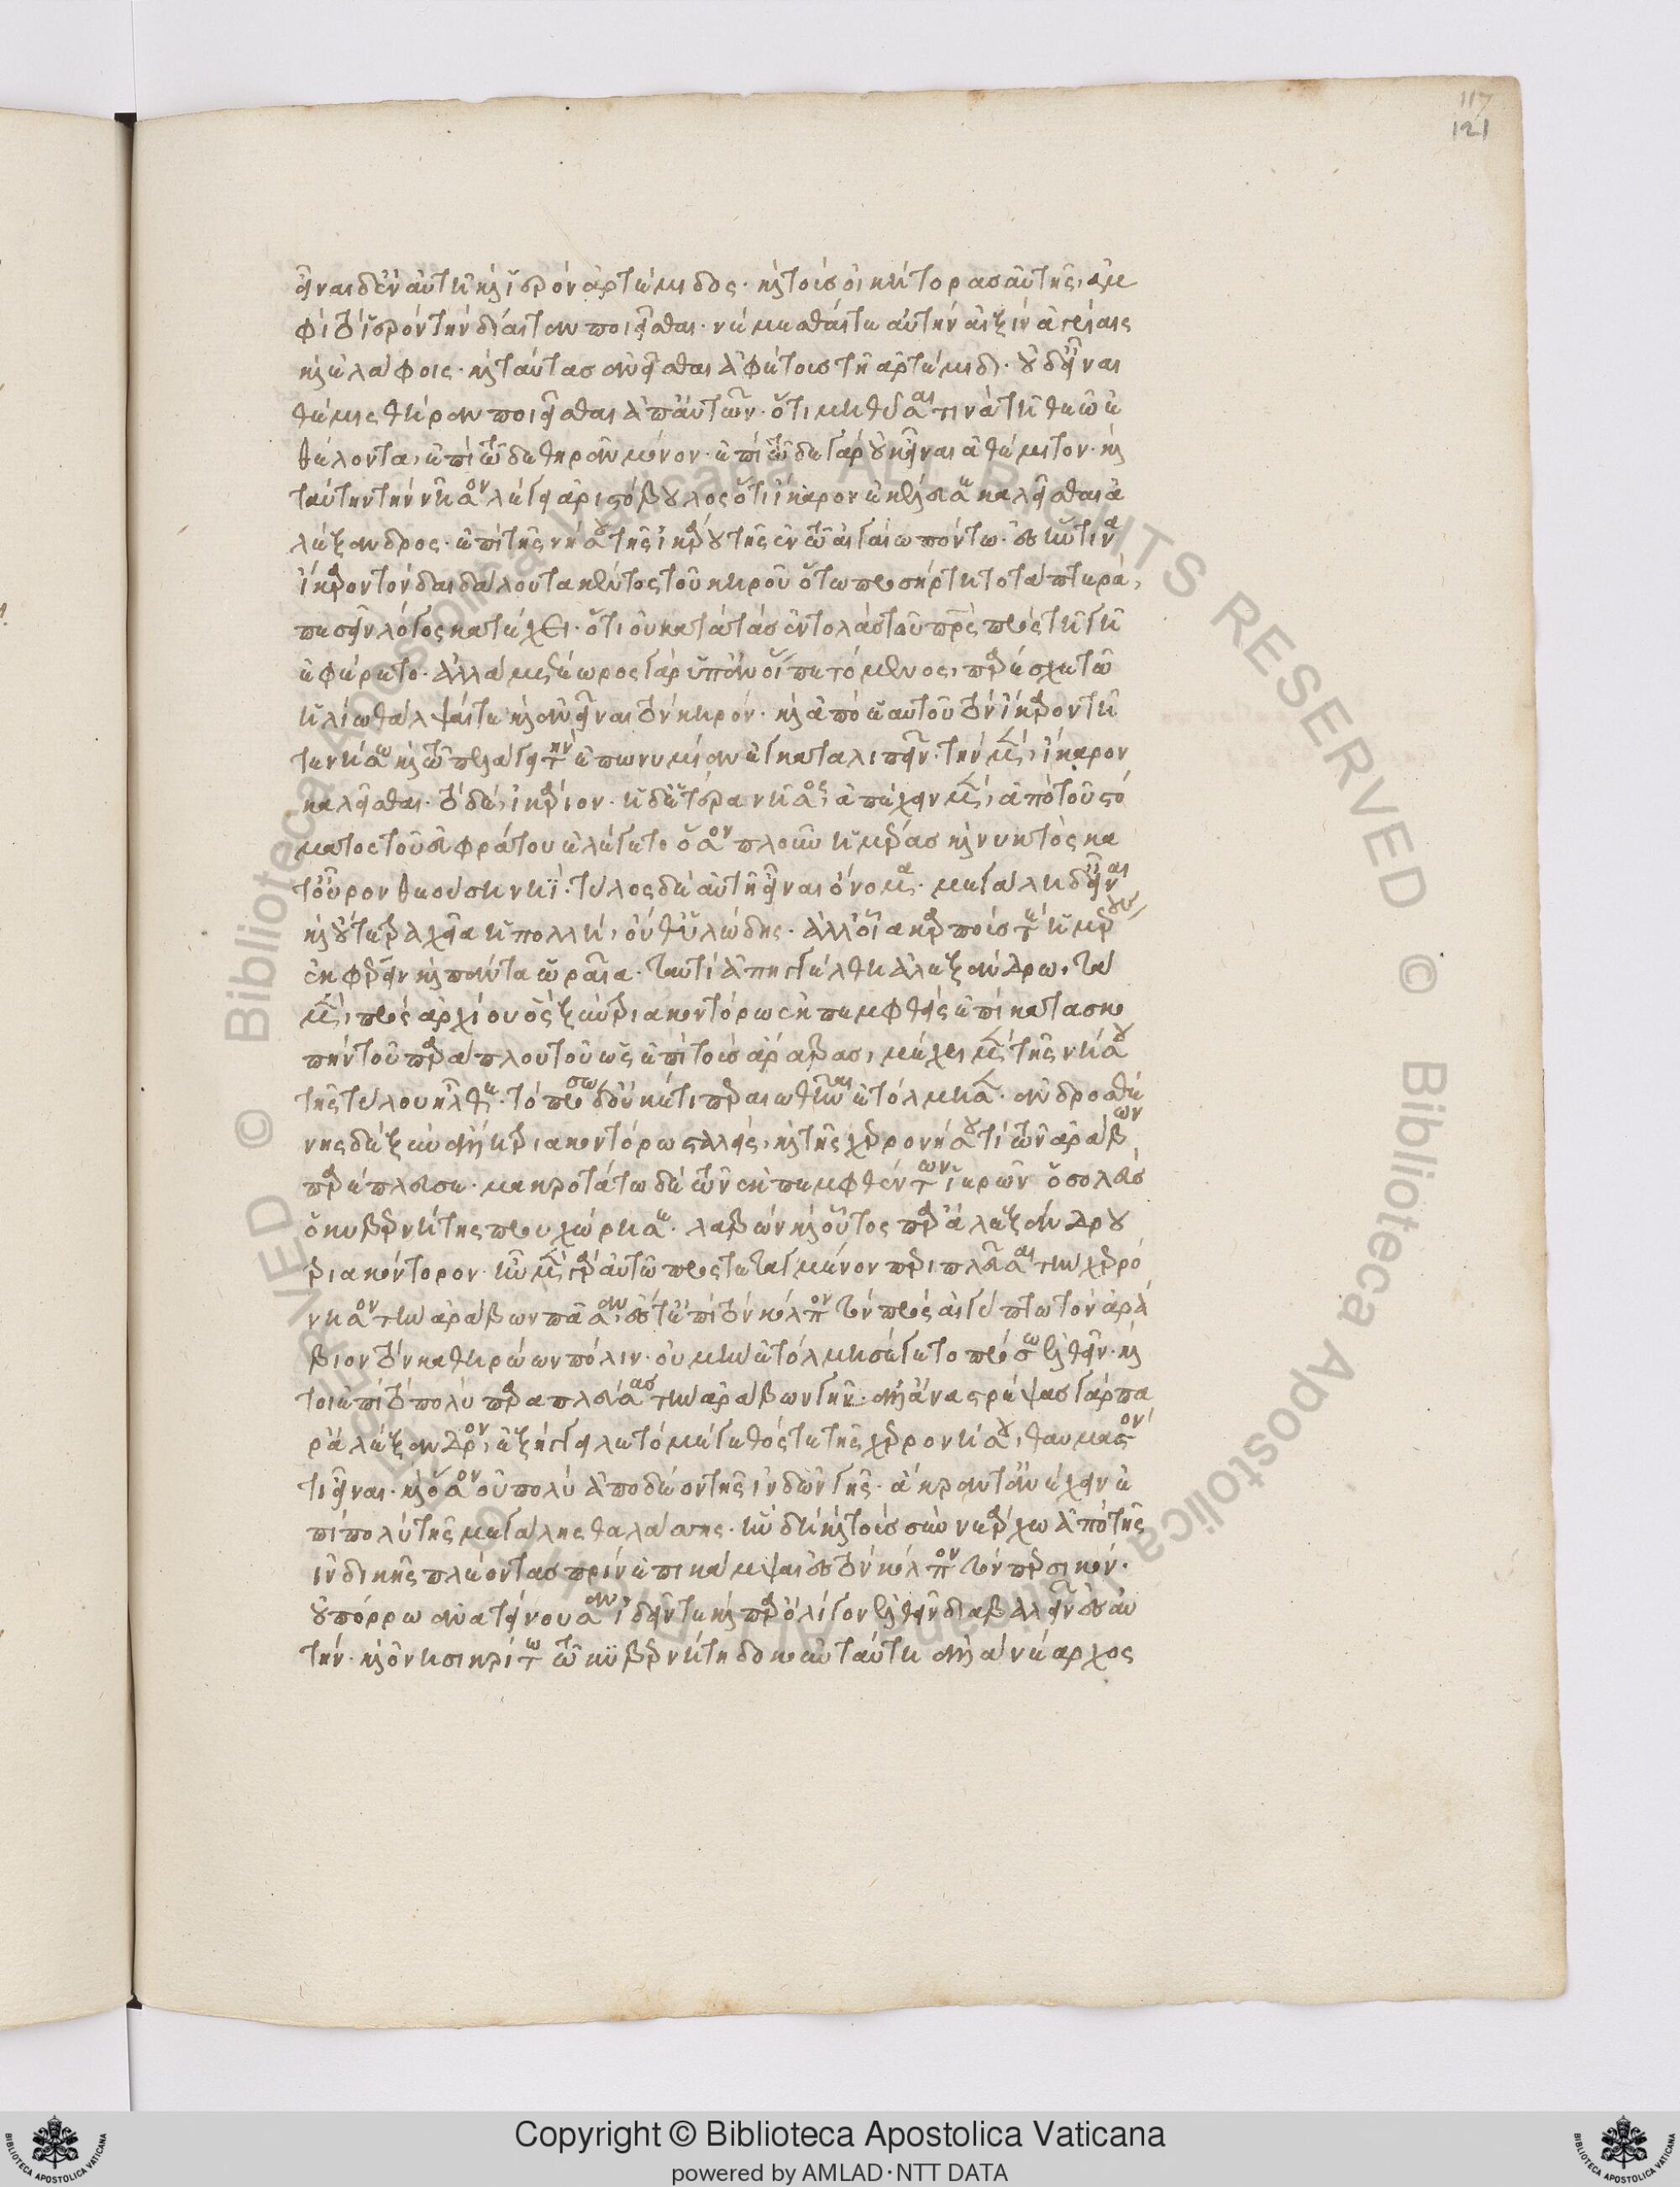 εἶναι δ' ἐν αὐτῆ καὶ ἱερὸν ἀρτέμιδος· καὶ τοὺς οἰκήτορας αὐτῆς, ἀμ
φὶ τὸ ἱερὸν τὴν δίαιταν ποιεῖσθαι· νέμεσθαί τε αὐτὴν αἰξὶν ἀγρίαις
καὶ ἐλάφοις· καὶ ταύτας ἀνεῖσθαι ἀφέτους τῆ ἀρτέμιδι· οὐδ' εἶναι
θέμις θήραν ποιεῖσθαι ἀπ' αὐτῶν· ὅτι μὴ θῦσαι τινὰ τῆ θεῶ ἐ
θέλοντα, ἐπὶ τῶδε θηρᾶν μόνον· ἐπὶ τῶδε γὰρ οὐκ εἶναι ἀθέμιτον· καὶ
ταύτην τὴν νῆσον λέγει ἀριστόβουλος ὅτι ἴκαρον ἐκέλευσε καλεῖσθαι ἀ
λέξανδρος· ἐπὶ τῆς νήσου τῆς ἰκάρου τῆς ἐν τῶ αἰγαίω πόντω· ἐς ἥντινα
ἴκαρον τὸν δαιδάλου τακέντος τοῦ κηροῦ ὅτω προσήρτητο τὰ πτερά,
πεσεῖν λόγος κατέχει· ὅτι οὐ κατὰ τὰς ἐντολὰς τοῦ πρς πρὸς τῆ γῆ
ἐφέρετο· ἀλλὰ μετέωρος γὰρ ὑπ' ἀνοί πετόμενος, παρέσχε τῶ
ἡλίω θάλψαί τε καὶ ἀνεῖναι τὸν κηρόν· καὶ ἀπὸ ἑαυτοῦ τὸν ἴκαρον τῆ
τε νήσω καὶ τῶ πελάγει τὴν ἐπωνυμίαν ἐγκαταλιπεῖν· τὴν μὲν, ἴκαρον
καλεῖσθαι· τὸ δὲ, ἰκάριον· ἡ δὲ ἑτέρα νῆσος, ἀπέχειν μὲν, ἀπὸ τοῦ στό
ματος τοῦ εὐφράτου ἐλέγετο ὅσον πλοῦν ἡμέρας καὶ νυκτὸς κα
τ' οὖρον θεούση νηῒ· τύλος δὲ αὐτῆ εἶναι ὄνομα· μεγάλη δ' εἶναι
καὶ οὔτε τραχεῖα ἡ πολλὴ, οὔθ' ὑλώδης· ἀλλ' οἵα καρποὺς τὲ ἡμέρους
ἐκφέρειν καὶ πάντα ὡραῖα· ταυτὶ ἀπηγγέλθη ἀλεξάνδρω, τὰ
μὲν, πρὸς ἀρχίου ὃς ξὺν τριακοντόρω ἐκπεμφθεὶς ἐπὶ κατασκο
πὴν τοῦ παράπλου τοῦ ὡς ἐπὶ τοὺς ἄραβας, μέχρι μὲν τῆς νήσου
τῆς τύλου ἦλθε· τὸ πρόσω δ' οὐκέτι περαιωθῆναι ἐτόλμησεν· ἀνδροσθέ
νης δὲ ξὺν ἄλλη τριακοντόρω σταλεὶς, καὶ τῆς χερρονήσου τὶ τῶν ἀράβων
παρέπλευσε· μακροτάτω δὲ τῶν ἐκπεμφθέντων ἱέρων ὁ σολεὺς
ὁ κυβερνήτης προυχώρησε· λαβὼν καὶ οὗτος παρ' ἀλεξάνδρου
τριακόντορον· ἦν μὲν γὰρ αὐτῶ προστεταγμένον περιπλεῦσαι τὴν χερρό
νησον τὴν ἀράβων πᾶσαν, ἔς τε ἐπὶ τὸν κόλπον τὸν πρὸς αἰγύπτω τὸν ἀρά
βιον τὸν καθ' ἡρώων πόλιν· οὐ μὴν ἐτόλμησέ γε τὸ πρόσω ἐλθεῖν· καί
τοι ἐπὶ τὸ πολὺ παραπλεύσας τὴν ἀράβων γῆν· ἀλλ' ἀναστρέψας γὰρ πα
ρ' ἀλέξανδρον, ἐξήγγειλε τὸ μέγεθός τε τῆς χερρονήσου, θαυμαστόν
τι εἶναι· καὶ ὅσον οὐ πολὺ ἀποδέον τῆς ἰνδῶν γῆς· ἄκραν τ' ἀνέχειν ἐ
πὶ πολὺ τῆς μεγάλης θαλάσσης· ἣν δὴ καὶ τοὺς σὺν νεάρχω ἀπὸ τῆς
ἰνδικῆς πλέοντας πρὶν ἐπικάμψαι ἐς τὸν κόλπον τὸν περσικόν·
οὐ πόρρω ἀνατείνουσαν, ἰδεῖν τε καὶ παρ' ὀλίγον ἐλθεῖν διαβαλεῖν ἐς αὐ
τήν· καὶ ὀνησικρίτω τῶ κυβερνήτη δοκοῦν ταύτη· ἀλλὰ νέαρχος